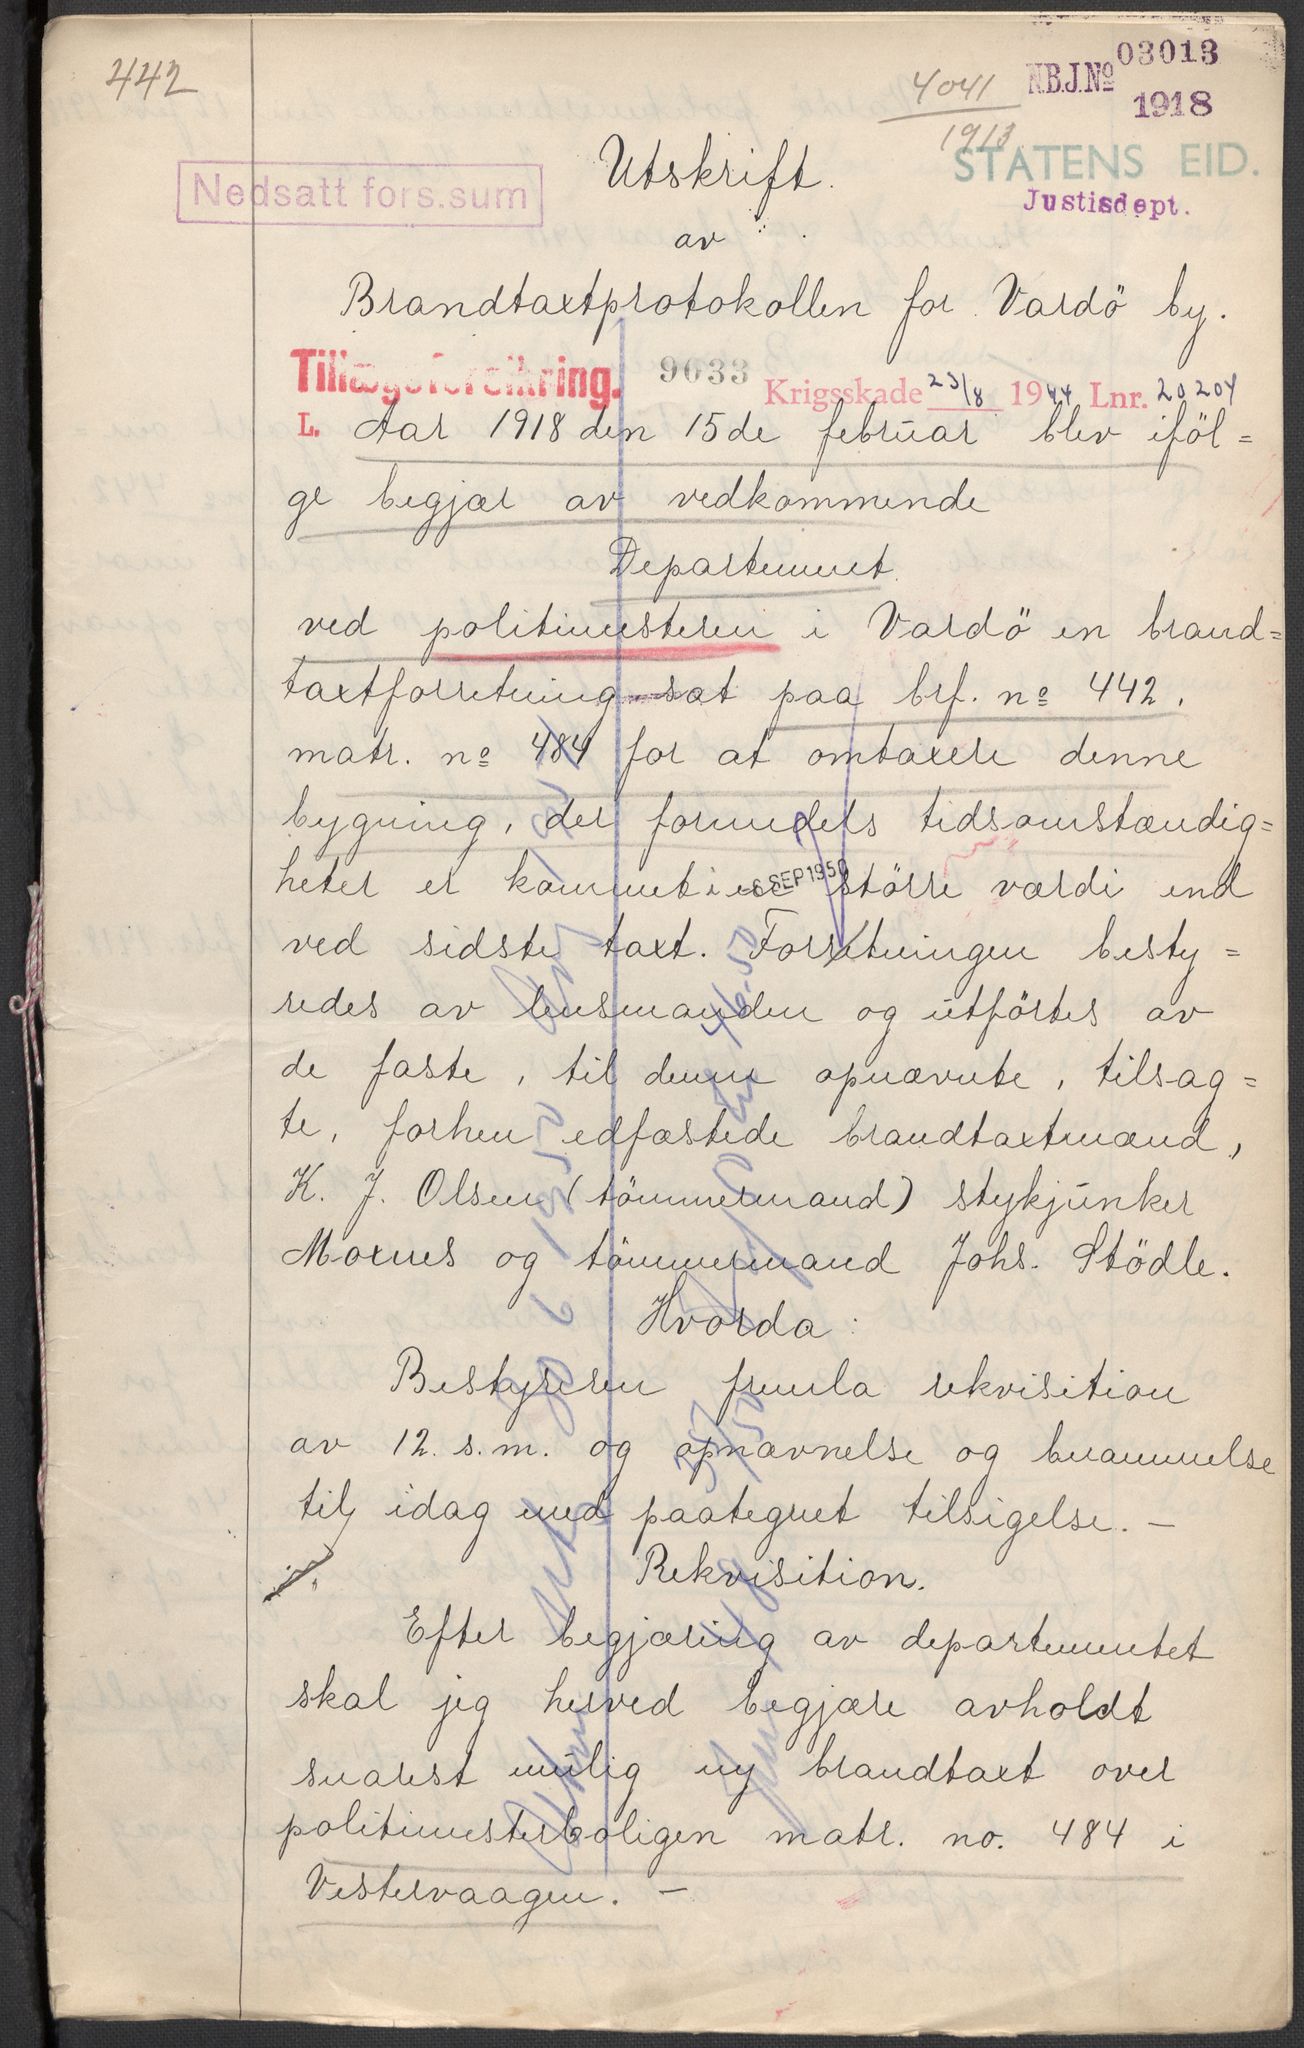 442
4041
1913
N.B.J.Nº 03013
1918
STATENS EID.
Justisdept.
Nedsatt fors.sum
Utskrift.
av
Brandtaxtprotokollen for Vardö by.
Tillægsforsikring.
9033
Krigsskade 23/8 1944 Lnr. 20204
L.
Aar 1918 den 15de februar blev iföl=
ge begjær av vedkommende
Departement
ved politimesteren i Vardö en brand=
taxtforretning sat paa brf. nº 442.
matr. nº 484 for at omtaxere denne
bygning, der formedels tidsomstændig=
heter er kommet i en större værdi end
6 SEP 1950
ved sidste taxt. Forretningen besty=
redes av lensmanden og utförtes av
de faste, til denne opnævnte, tilsag=
te, forhen edfæstede brandtaxtmænd,
K. J. Olsen (tömmermand) stykjunker
Moxnes og tömmermand Johs. Stödle.
Hvorda:
Bestyreren fremla rekvisition
av 12. s.m. og opnævnelse og berammelse
til idag med paategnet tilsigelse. —
Rekvisition.
Efter begjæring av departementet
skal jeg herved begjære avholdt
snarest mulig ny brandtaxt over
politimesterboligen matr. no. 484 i
Vestervaagen. —